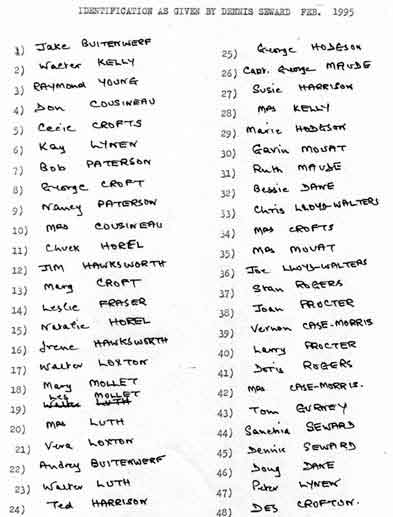 IDENTIFICATION AS GIVEN BY DENNIS SEWARD FEB. 1995
1) Jake BUITENWERF
2) Walter KELLY
3) RAYMOND YOUNG
4) Don COUSINEAU
5) Cecie CROFTS
6) Kay LYNEN
7) Bob PATERSON
8) George CROFT
9) Nancy PATERSON
10) MRS COUSINEAU
11) Chuck HOREL
12) JIM HAWKSWORTH
13) Mary CROFT
14) Leslie FRASER
15) Natalie HOREL
16) Irene HAWKSWORTH
17) Walter LOXTON
18) Mary MOLLET
Les MOLLET
19) Walter LUTH
20) MRS LUTH
21) Vera LOXTON
22) Audrey BUITENWERF
23) Walter LUTH
24) Ted HARRISON
25) George HODGSON
26) Capt. George MAUDE
27) Susie HARRISON
28) MRS KELLY
29) Marie HODGSON
30) Gavin MOUAT
31) Ruth MAUDE
32) Bessie DANE
33) Chris LLOYD-WALTERS
34) MRS CROFTS
35) MRS MOUAT
36) Joe LLOYD-WALTERS
37) Stan ROGERS
38) Joan PROCTER
39) Vernon CASE-MORRIS
40) Larry PROCTER
41) Doris ROGERS
42) MRS CASE-MORRIS.
43) Tom GURNEY
44) Sanchia SEWARD
45) Dennis SEWARD
46) Doug DANE
47) Peter LYNEN
48) DES CROFTON.